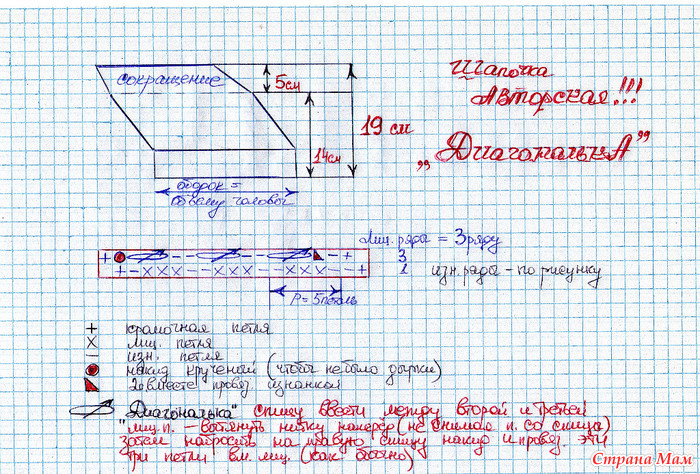 Шапочка
Авторская!!!
„Диагональка”
сокращение
5см
19 см
14см
ободок =
объёму головы
Лиц. ряды = 3 ряду
3
1 изн. ряды - по рисунку
+ - - - - +
+ - X X X - - X X X - - X X X - +
P = 5 петель
+ кромочная петля
X лиц. петля
- изн. петля
накид крученый (чтобы не было дырки)
2 вместе провяз. изнанкой
"Диагональка" спицу ввести между второй и третьей
лиц. п. - вытянуть нитку наперёд (не снимая п. со спицы)
затем набросить на левую спицу накид и провяз. эти
три петли вм. лиц. (как обычно)
Страна Мам